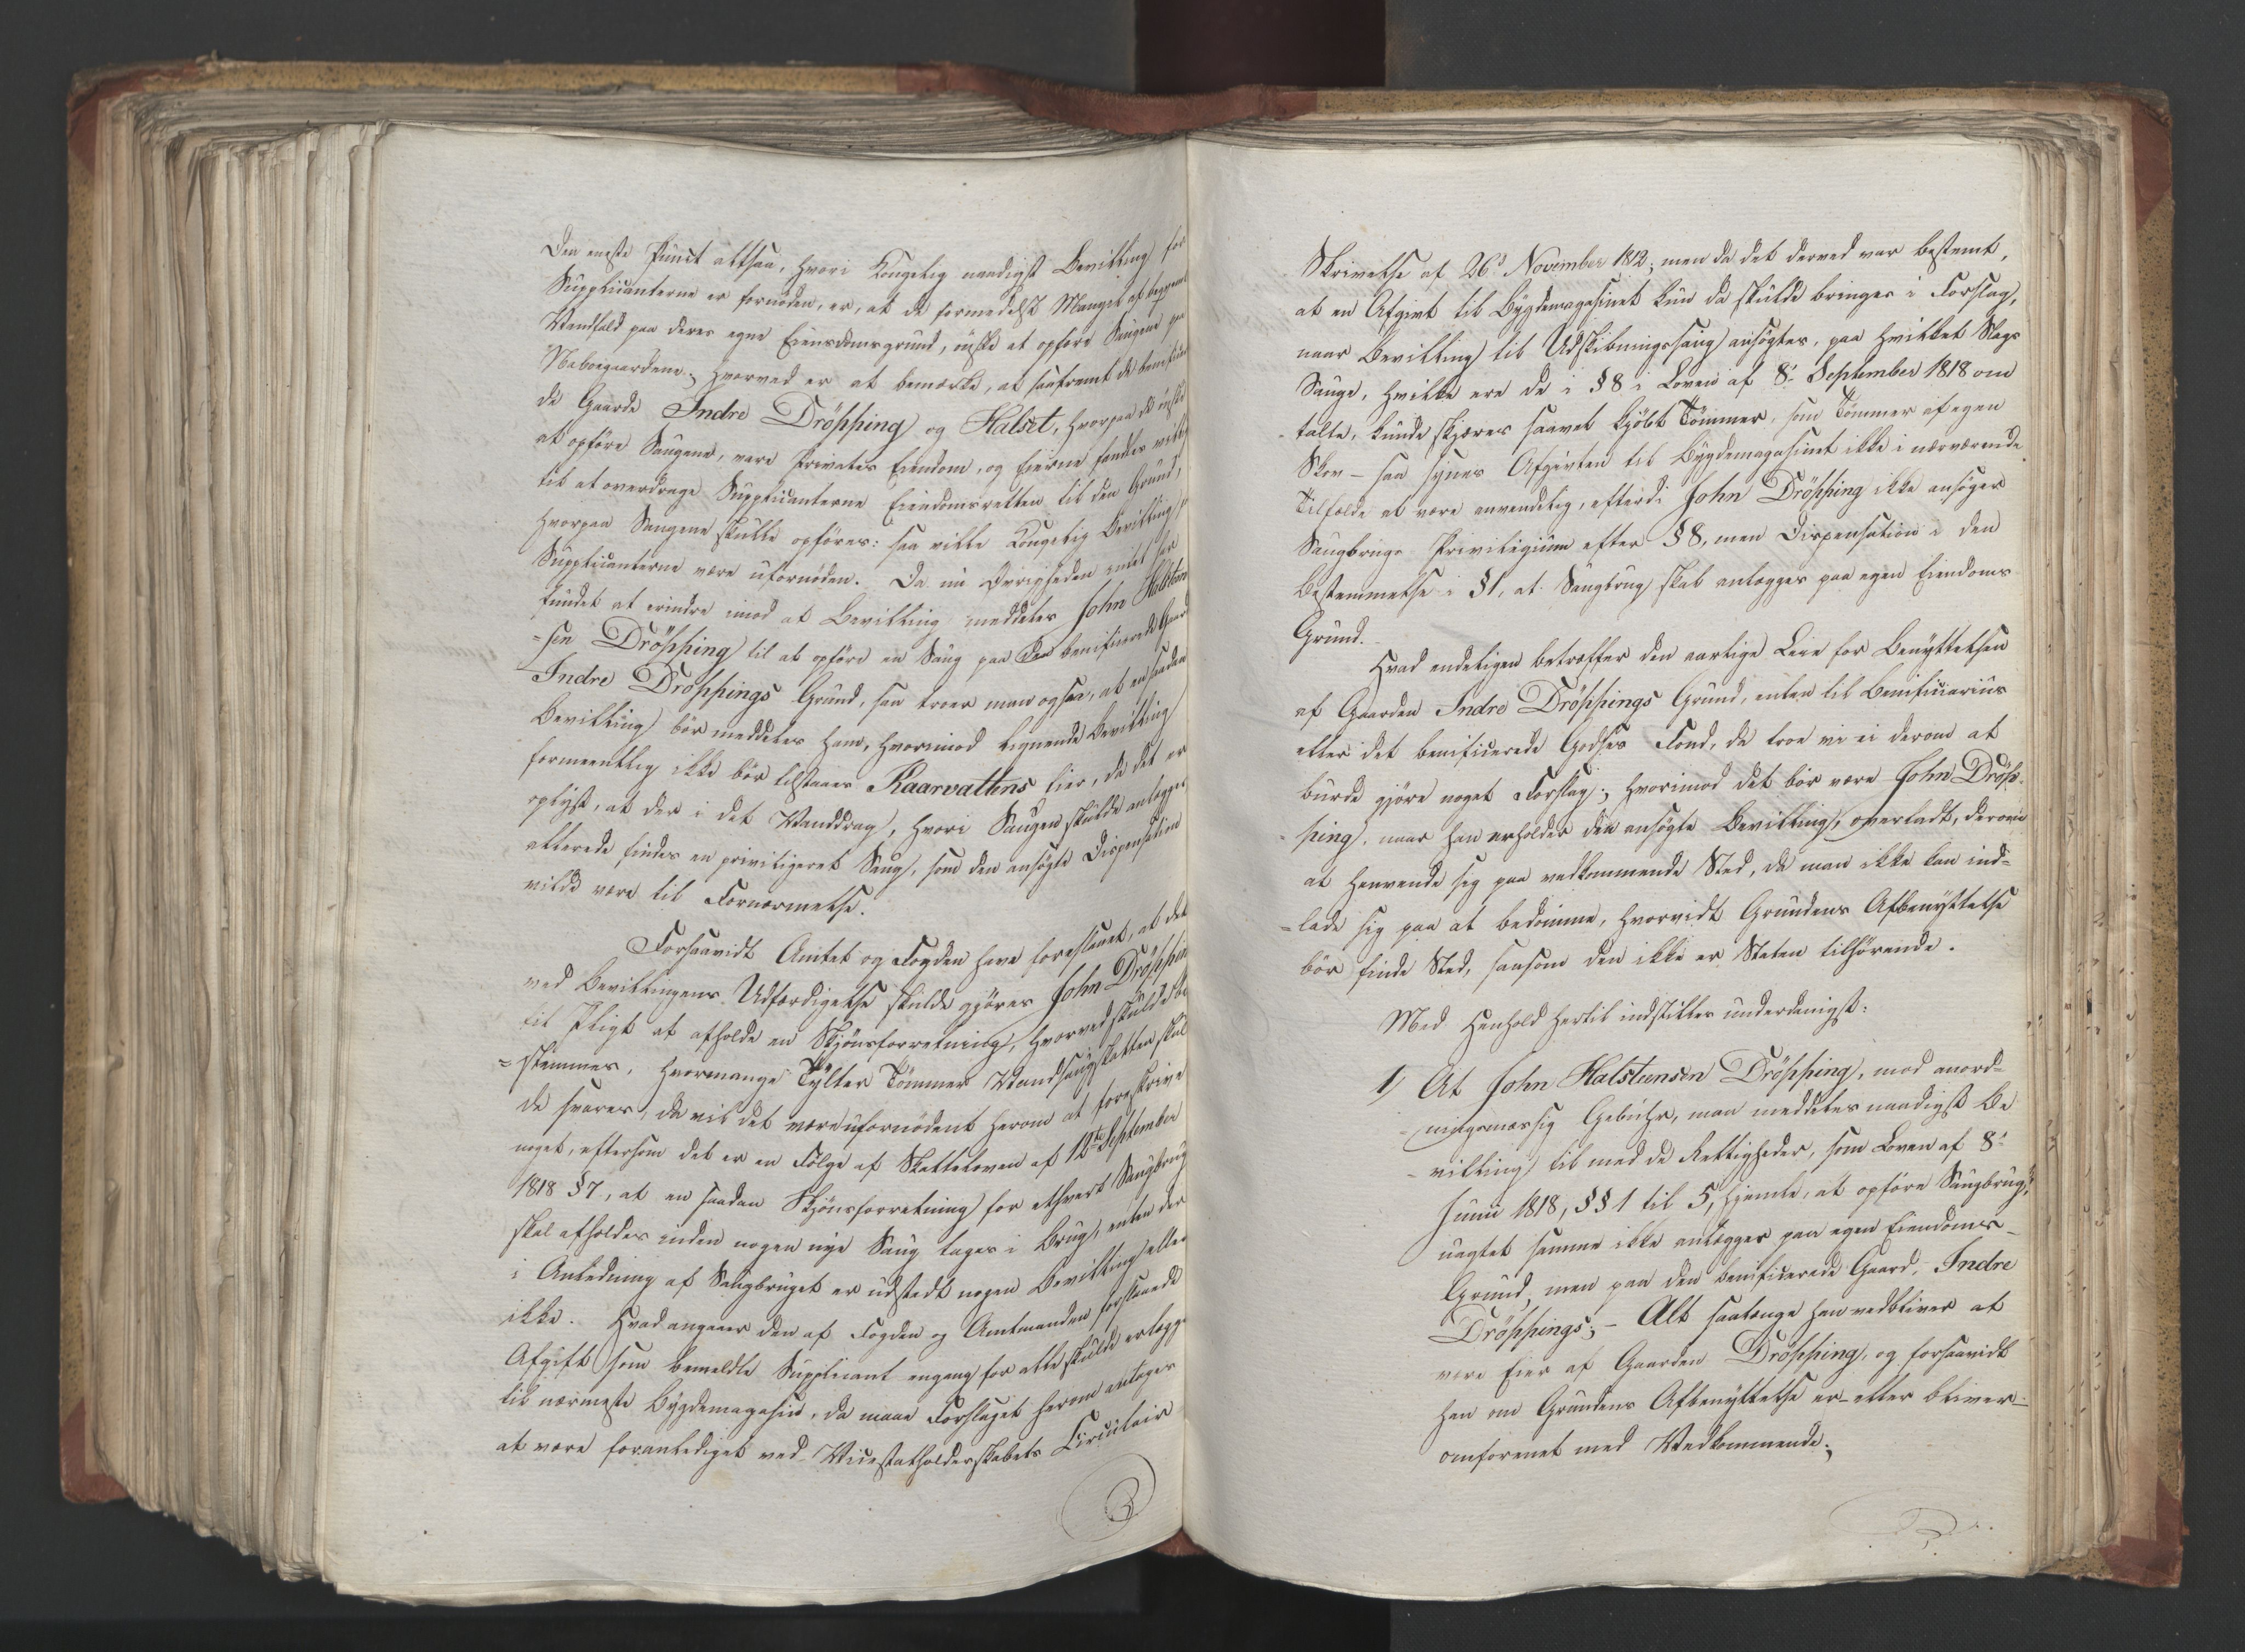 Den eneste Punct altsaa, hvori Kongelig naadigst Bevilling for
Supplicanterne er fornöden, er, at de formedelst Mangel af beqvemt
Vandfald paa deres egne Eiendomsgrund, önske at opföre Saugene paa
Naboegaardene; hvorved er at bemærke, at saafremt de benificere-
de Gaarde Indre Dröpping og Halset, hvorpaa de önske
at opföre Saugene, vare Privates Eiendom, og Eierne fandtes villige
til at overdrage Supplicanterne Eiendomsretten til den Grund,
hvorpaa Saugene skulle opföres: saa ville Kongelig Bevilling for
Supplicanterne være ufornöden. Da nu Övrigheden intet har
fundet at erindre imod at Bevilling meddeles John Halsten-
=sen Dröpping til at opföre en Saug paa den benificerede Gaard
Indre Dröppings Grund, saa troer man ogsaa, at en saadan
Bevilling bör meddeles ham, hvorimod lignende Bevilling
formeentlig ikke bör tilstaaes Kaarvattens Eier, da det er
oplyst, at der i det Vanddrag, hvori Saugen skulde anlægges
allerede findes en privilegeret Saug, som den ansögte Dispensation
vilde være til Fornærmelse.
Forsaavidt Amtet og Fogden have foreslaaet, at det
ved Bevillingens Udfærdigelse skulde gjöres John Dröpping
til Pligt at afholde en Skjönsforretning, hvorved skulde be-
=stemmes, hvormange Tylter Tömmer Vandsaugskatten skul
de svares, da vil det være ufornödent herom at foreskrive
noget, eftersom det er en Fölge af Skatteloven af 12te September
1818 §7, at en saadan Skjönsforretning for ethvert Saugbrug
skal afholdes inden nogen nye Saug tages i Brug, enten der
i Anledning af Saugbruget er udstedt nogen Bevilling eller
ikke. Hvad angaaer den af Fogden og Amtmanden foreslaaede
Afgift som bemeldte Supplicant engang for alle skulde erlægge
til nærmeste Bygdemagasin, da maae Forslaget herom antages
at være foranlediget ved Vicestatholderskabets Circulair
Skrivelse af 26d November 1812; men da det derved var bestemt,
at en Afgivt til Bygdemagasinet kun da skulde bringes i Forslag,
naar Bevilling til Udskibningssaug ansögtes, paa hvilket Slags
Sauge, hvilke ere de i §8 i Loven af 8d September 1818 om
talte, kunde skjæres saavel kjöbt Tömmer, som Tömmer af egen
Skov – saa synes Afgivten til Bygdemagasinet ikke i nærværende
Tilfælde at være anvendelig, efterdi John Dröpping ikke ansöger
Saugbrugs Privilegium efter §8, men Dispensation i den
Bestemmelse i §1, at Saugbrug skal anlægges paa egen Eiendoms
Grund.
Hvad endeligen betræffer den aarlige Leie for Benyttelsen
af Gaarden Indre Dröppings Grund, enten til Beneficiarius
eller det benificerede Godses Fond, da troe vi ei derom at
burde gjöre noget Forslag; hvorimod det bör være John Dröp-
=ping, naar han erholder den ansögte Bevilling, overladt, derom
at henvende sig paa vedkommende Sted, da man ikke kan ind=
=lade sig paa at bedömme, hvorvidt Grundens Afbenyttelse
bör finde Sted, saasom den ikke er Staten tilhörende.
Med Henhold hertil indstilles underdanigst:
1) At John Halstensen Dröpping, mod anord=
ningsmæssig Gebühr, maa meddeles naadigst Be
villing til med de Rettigheder, som Loven af 8d
Junii 1818, §§ 1 til 5, hjemle, at opföre Saugbrug,
uagtet samme ikke anlægges paa egen Eiendoms
Grund, men paa den benificerede Gaard, Indre
Dröppings; – Alt saalænge han vedbliver at
være Eier af Gaarden Dröpping, og forsaavidt
han om Grundens Afbenyttelse er – eller bliver –
omforenet med Vedkommende;